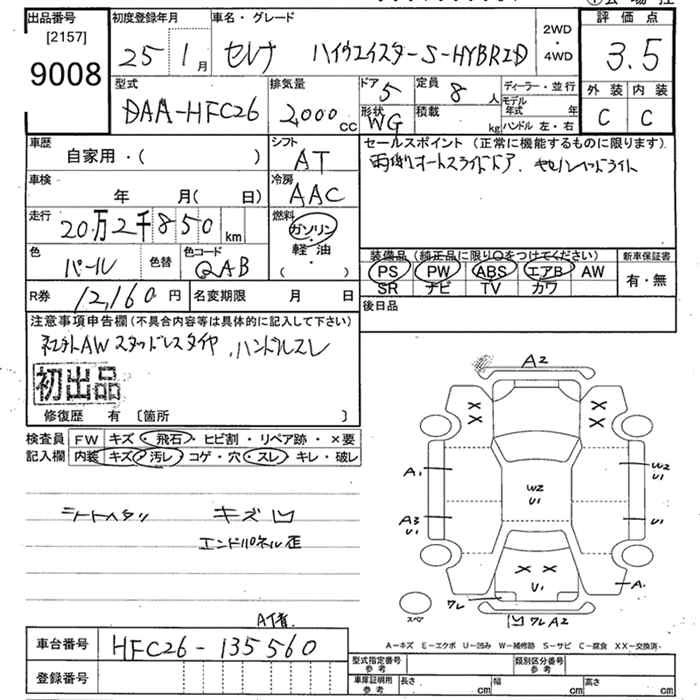 出品番号 初度登録年月 車名・グレード 2WD ・ 4WD 評価点
[2157]
9008 25 1月 セレナ ハイウェイスターS-HYBRID 3.5
型式 排気量 ドア 5 定員 8人 ディーラー・並行 外装 内装
DAA-HFC26 2,000cc 形状 WG 積載 kg モデル年式 年 C C
ハンドル 左・右
車歴 シフト セールスポイント (正常に機能するものに限ります)
自家用・( ) AT 両側オートスライドドア、
車検 冷房
年 月( 日) AAC
走行 燃料
20万2千850km ガソリン・軽油・( )
色 色替 色コード 装備品 (純正品に限り○をつけてください) 新車保証書
パール QAB PS PW ABS エアB AW 有・無
SR ナビ TV カワ
R券 12,160円 名変期限 月 日 後日品
注意事項申告欄 (不具合内容等は具体的に記入して下さい)
社外AWスタッドレスタイヤ、ハンドルスレ
初出品
修復歴 有 〔箇所 〕
検査員 FW キズ・飛石・ヒビ割・リペア跡・×要
記入欄 内装 キズ・汚レ・コゲ・穴・スレ・キレ・破レ
シートヘタリ キズ凹
エンドパネル歪
A2
A1 W2 U1 W2 U1
A3 U1 U1
U1 A1
ワレ 凹ワレA2
スペア
車台番号 HFC26-135560
A-キズ E-エクボ U-凹み W-補修跡 S-サビ C-腐食 XX-交換済.
登録番号 型式指定番号 参考 類別区分番号 参考
車庫証明用 参考 長さ cm 幅 cm 高さ cm